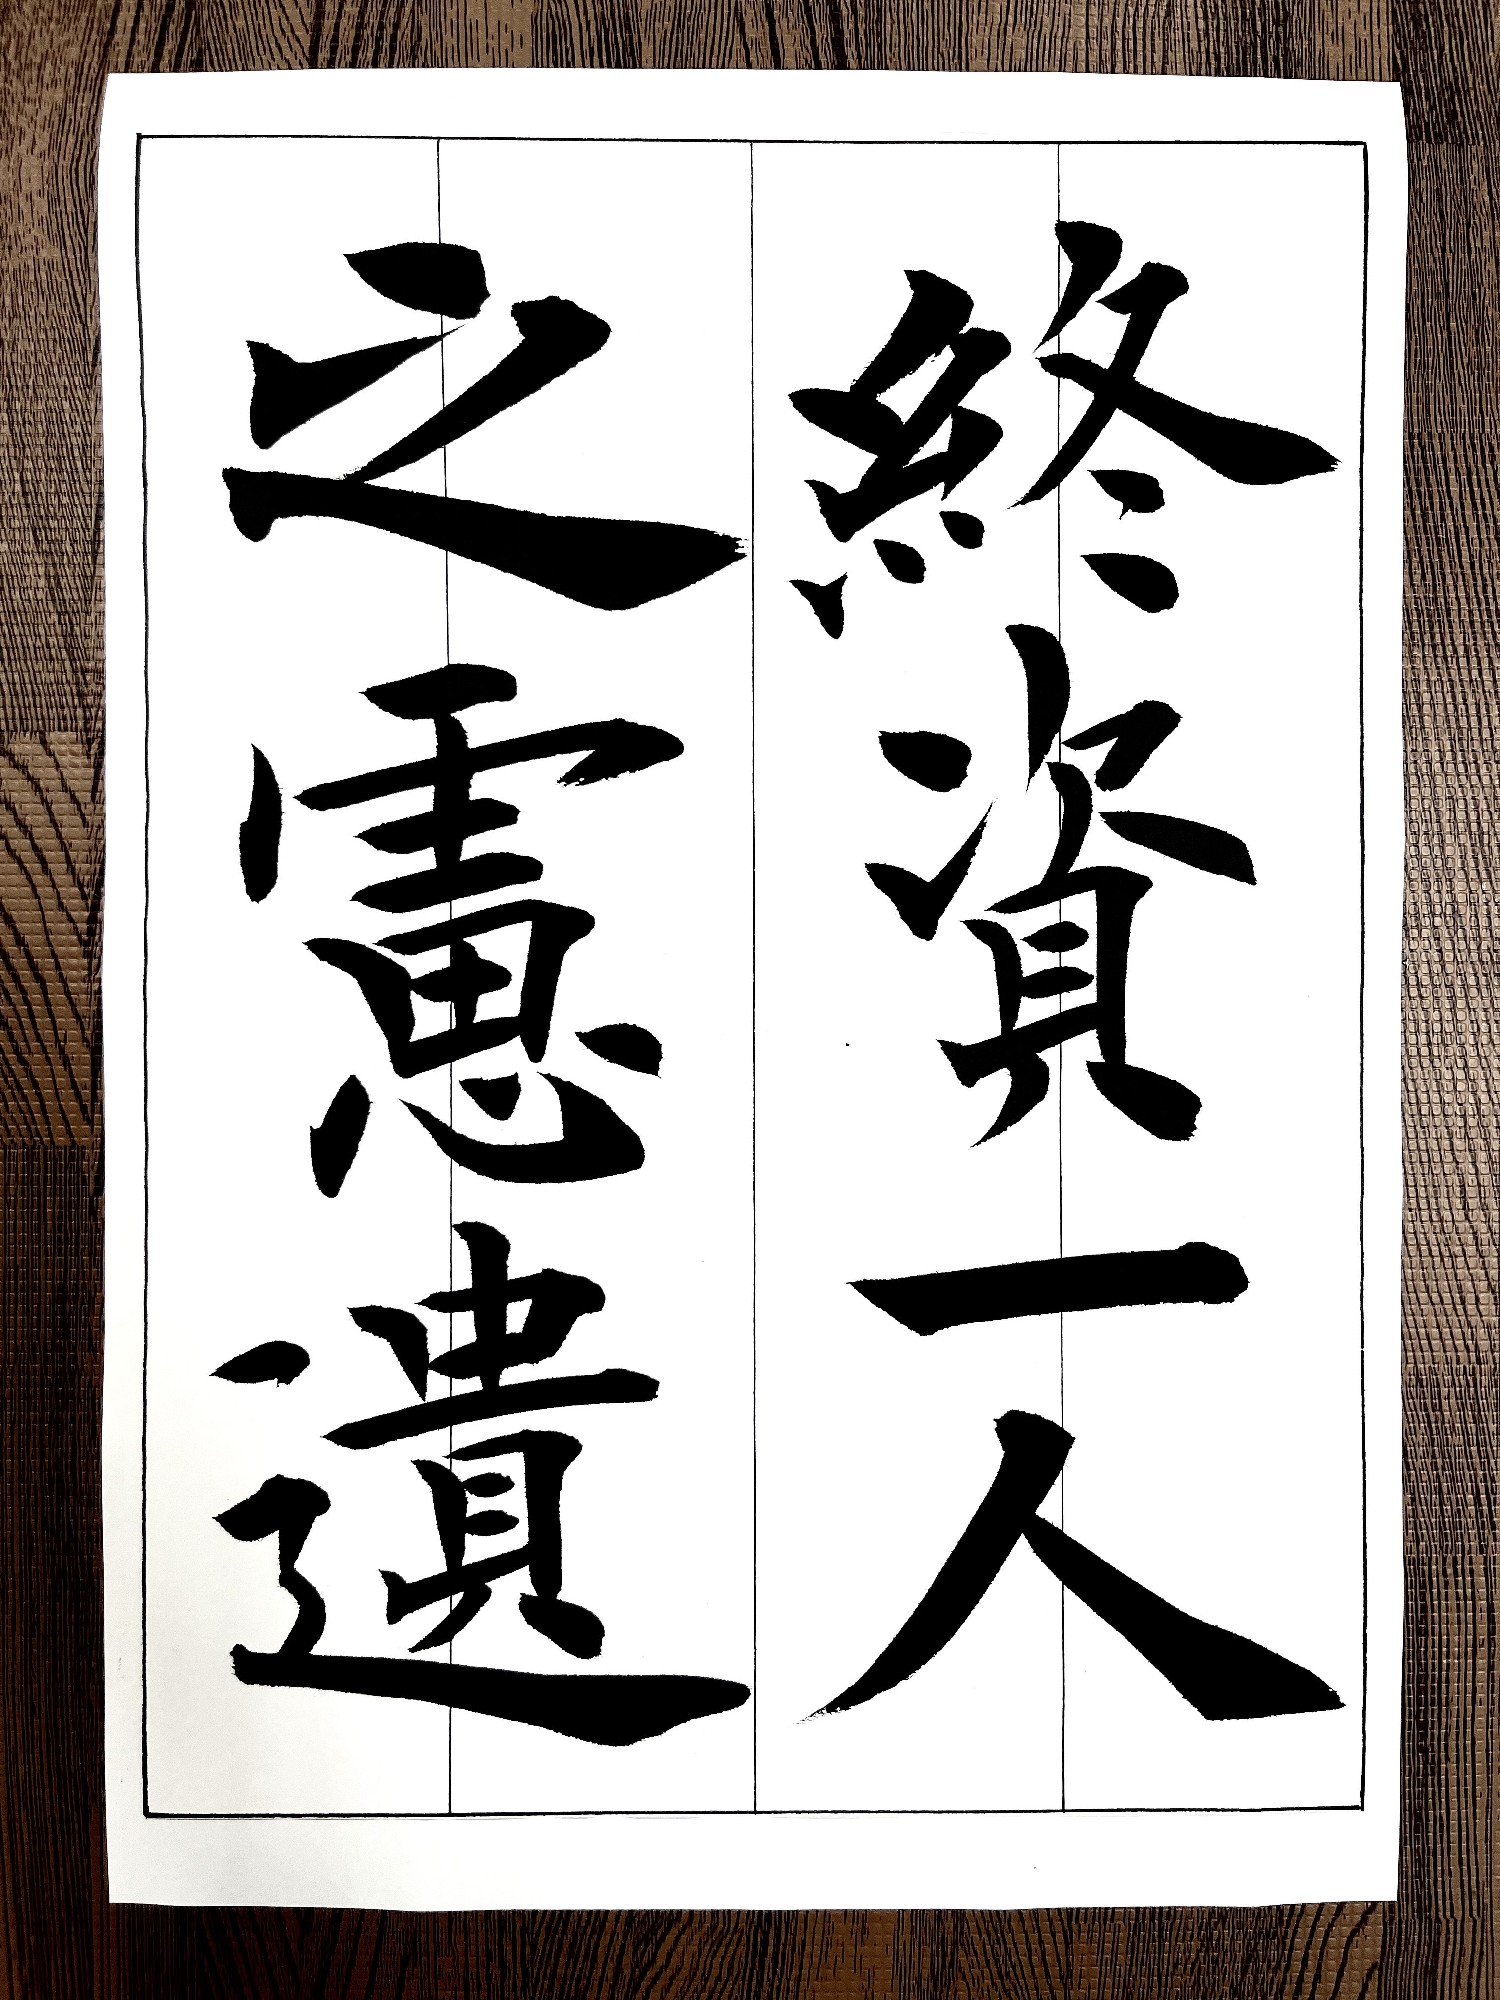 終資一人
之憲遺